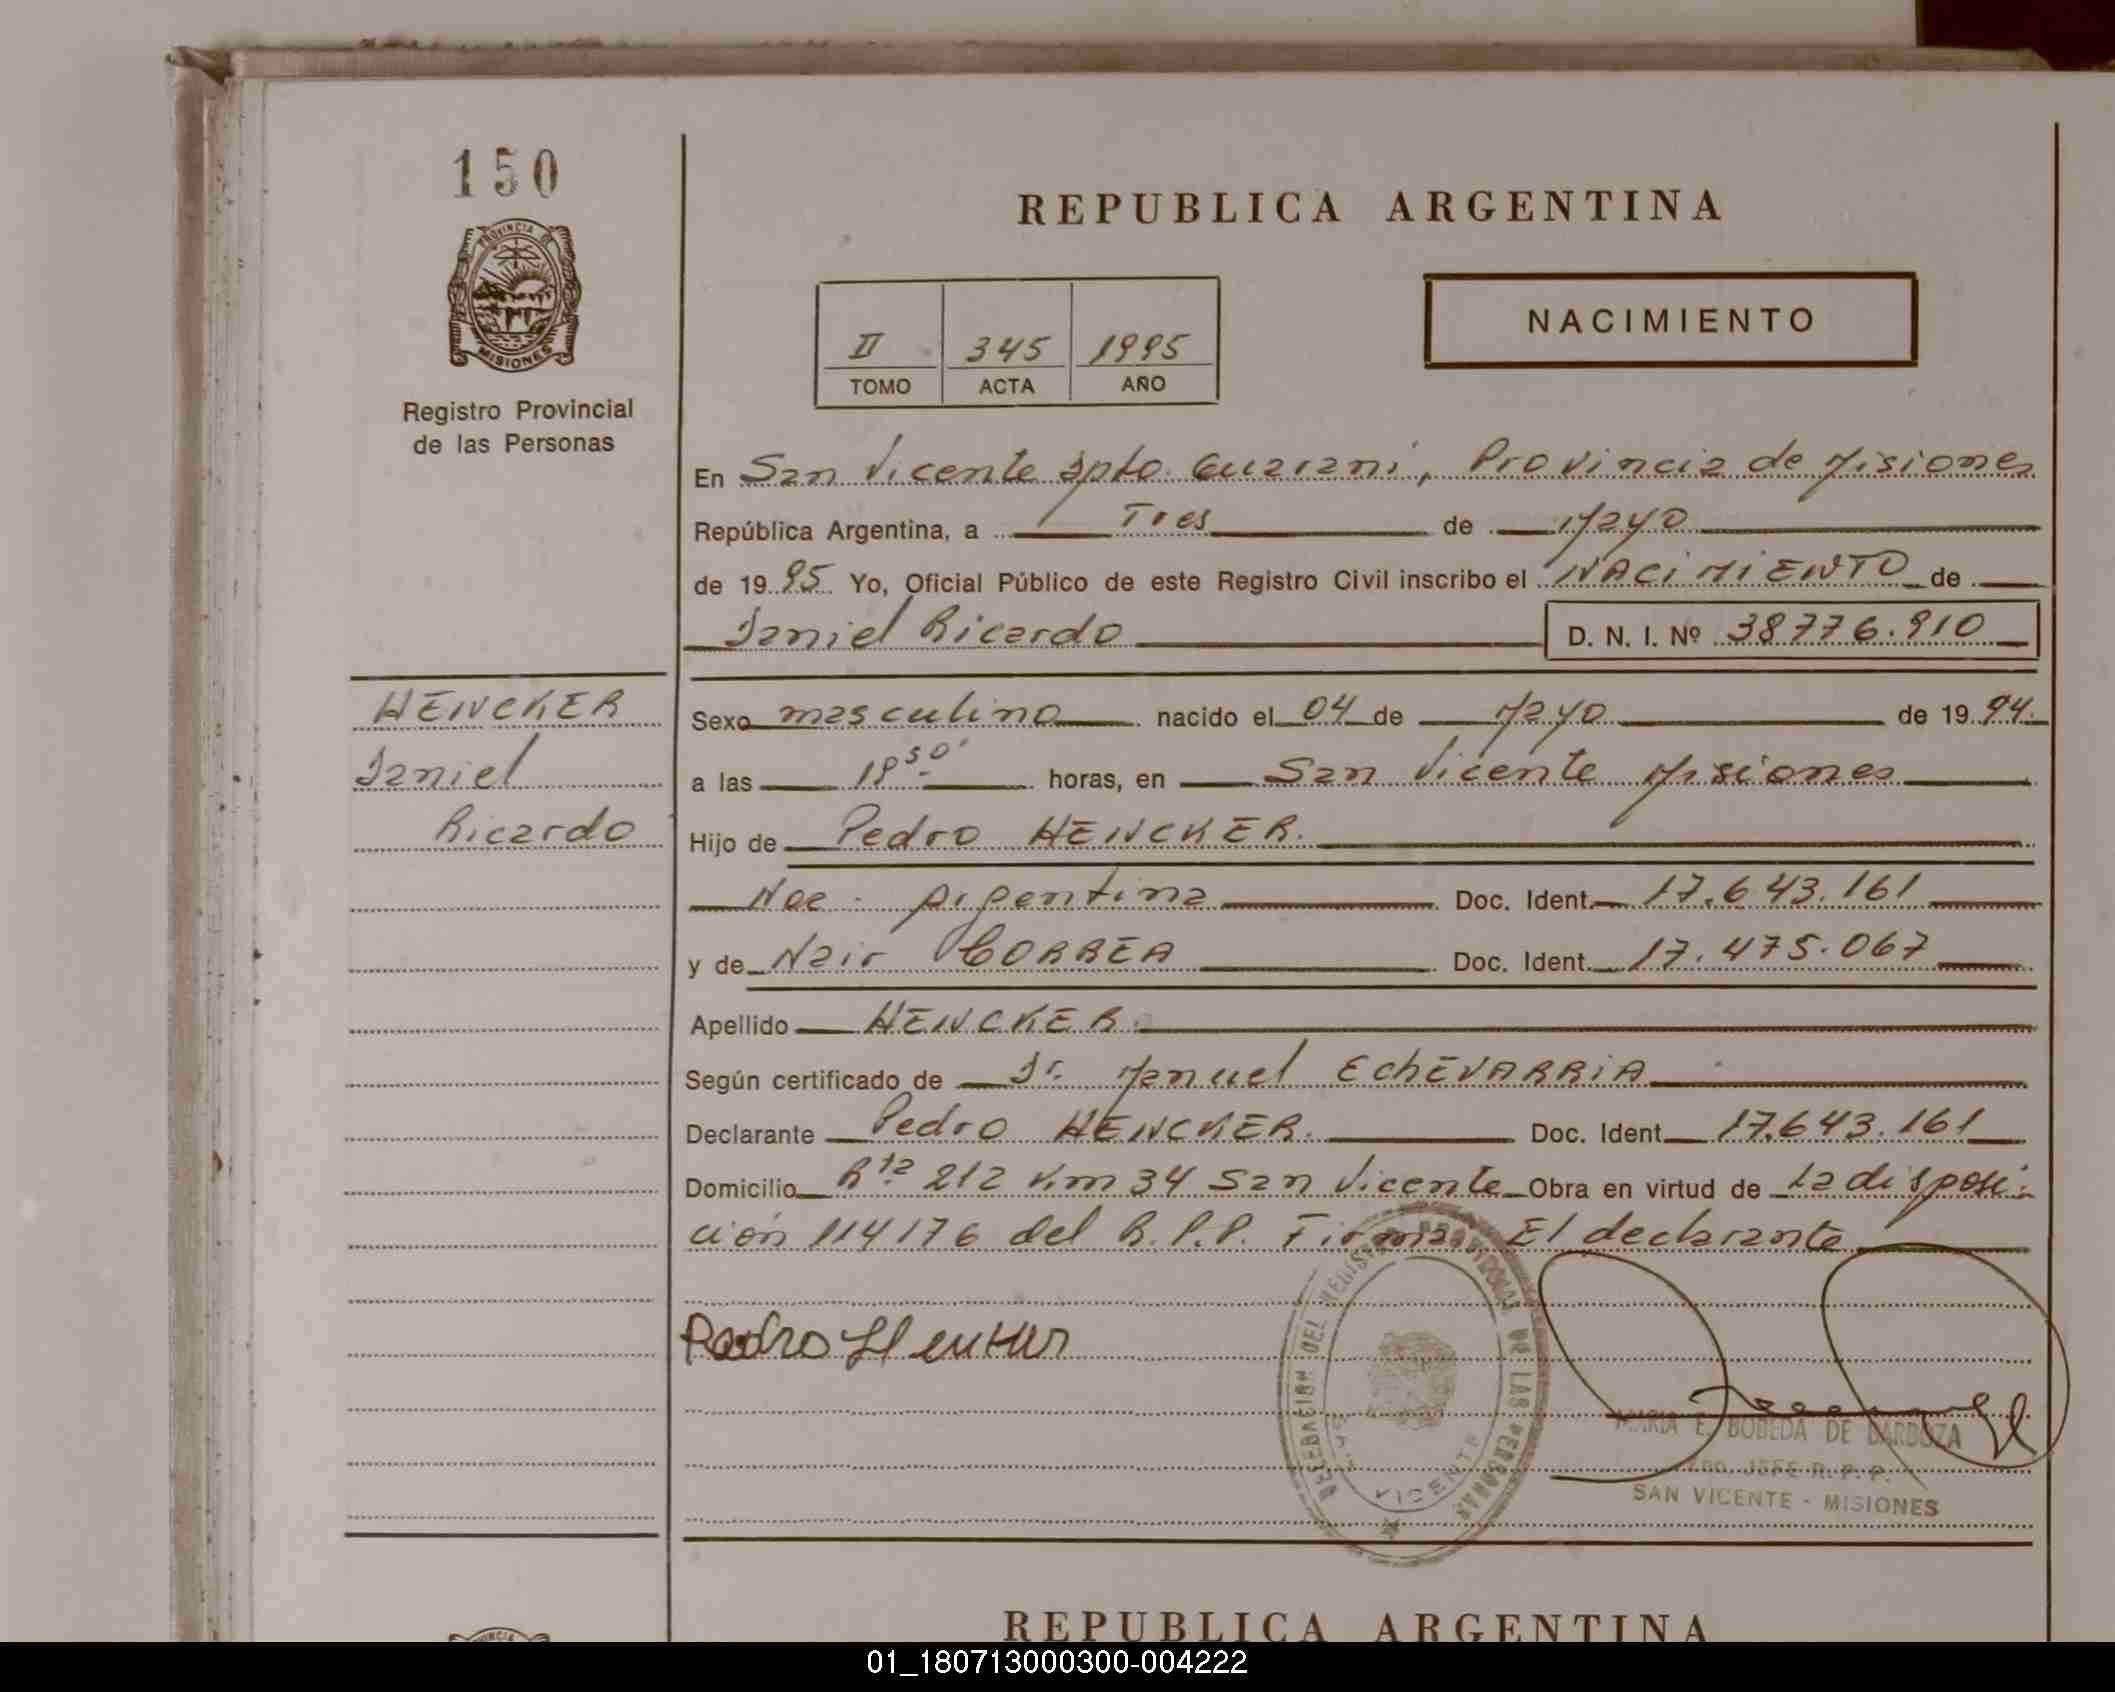 150
PROVINCIA DE
MISIONES
Registro Provincial
de las Personas
REPUBLICA ARGENTINA
II 345 1995
TOMO ACTA AÑO
NACIMIENTO
En San Vicente Dpto. Guarani, Provincia de Misiones
República Argentina, a Tres de Mayo
de 1995 Yo, Oficial Público de este Registro Civil inscribo el NACIMIENTO de
Daniel Ricardo D. N. I. Nº 38776.910
HENCKER
Daniel
Ricardo
Sexo masculino nacido el 04 de Mayo de 1994.
a las 18 50' horas, en San Vicente Misiones
Hijo de Pedro HENCKER.
Nac. Argentina Doc. Ident. 17.643.161
y de Nair CORREA Doc. Ident. 17.475.067
Apellido HENCKER.
Según certificado de Dr. Manuel EChEVARRIA
Declarante Pedro HENCKER. Doc. Ident. 17.643.161
Domicilio Rta. 212 Km 34 San Vicente Obra en virtud de la disposi-
ción 114176 del R.P.P. Firma: El declarante
Pedro Henker
DELEGACION DEL REGISTRO PROVINCIAL DE LAS PERSONAS
SAN VICENTE
MARIA E. BOBEDA DE BARBOZA
JEFE R. P. P.
SAN VICENTE - MISIONES
REPUBLICA ARGENTINA
01_180713000300-004222